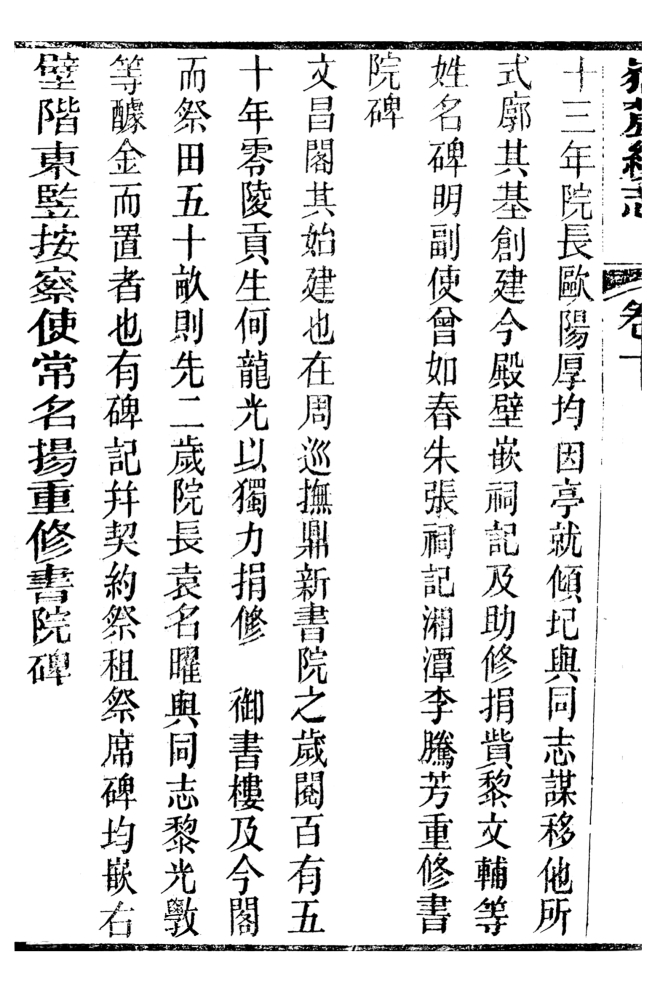 嶽麓續志
卷十
十三年院長歐陽厚均因亭就傾圮與同志謀移他所
式廓其基創建今殿壁嵌祠記及助修捐貲黎文輔等
姓名碑明副使曾如春朱張祠記湘潭李騰芳重修書
院碑
文昌閣其始建也在周巡撫鼎新書院之歲閱百有五
十年零陵貢生何龍光以獨力捐修　御書樓及今閣
而祭田五十畝則先二歲院長袁名曜與同志黎光斆
等醵金而置者也有碑記幷契約祭租祭席碑均嵌右
壁階東監按察使常名揚重修書院碑